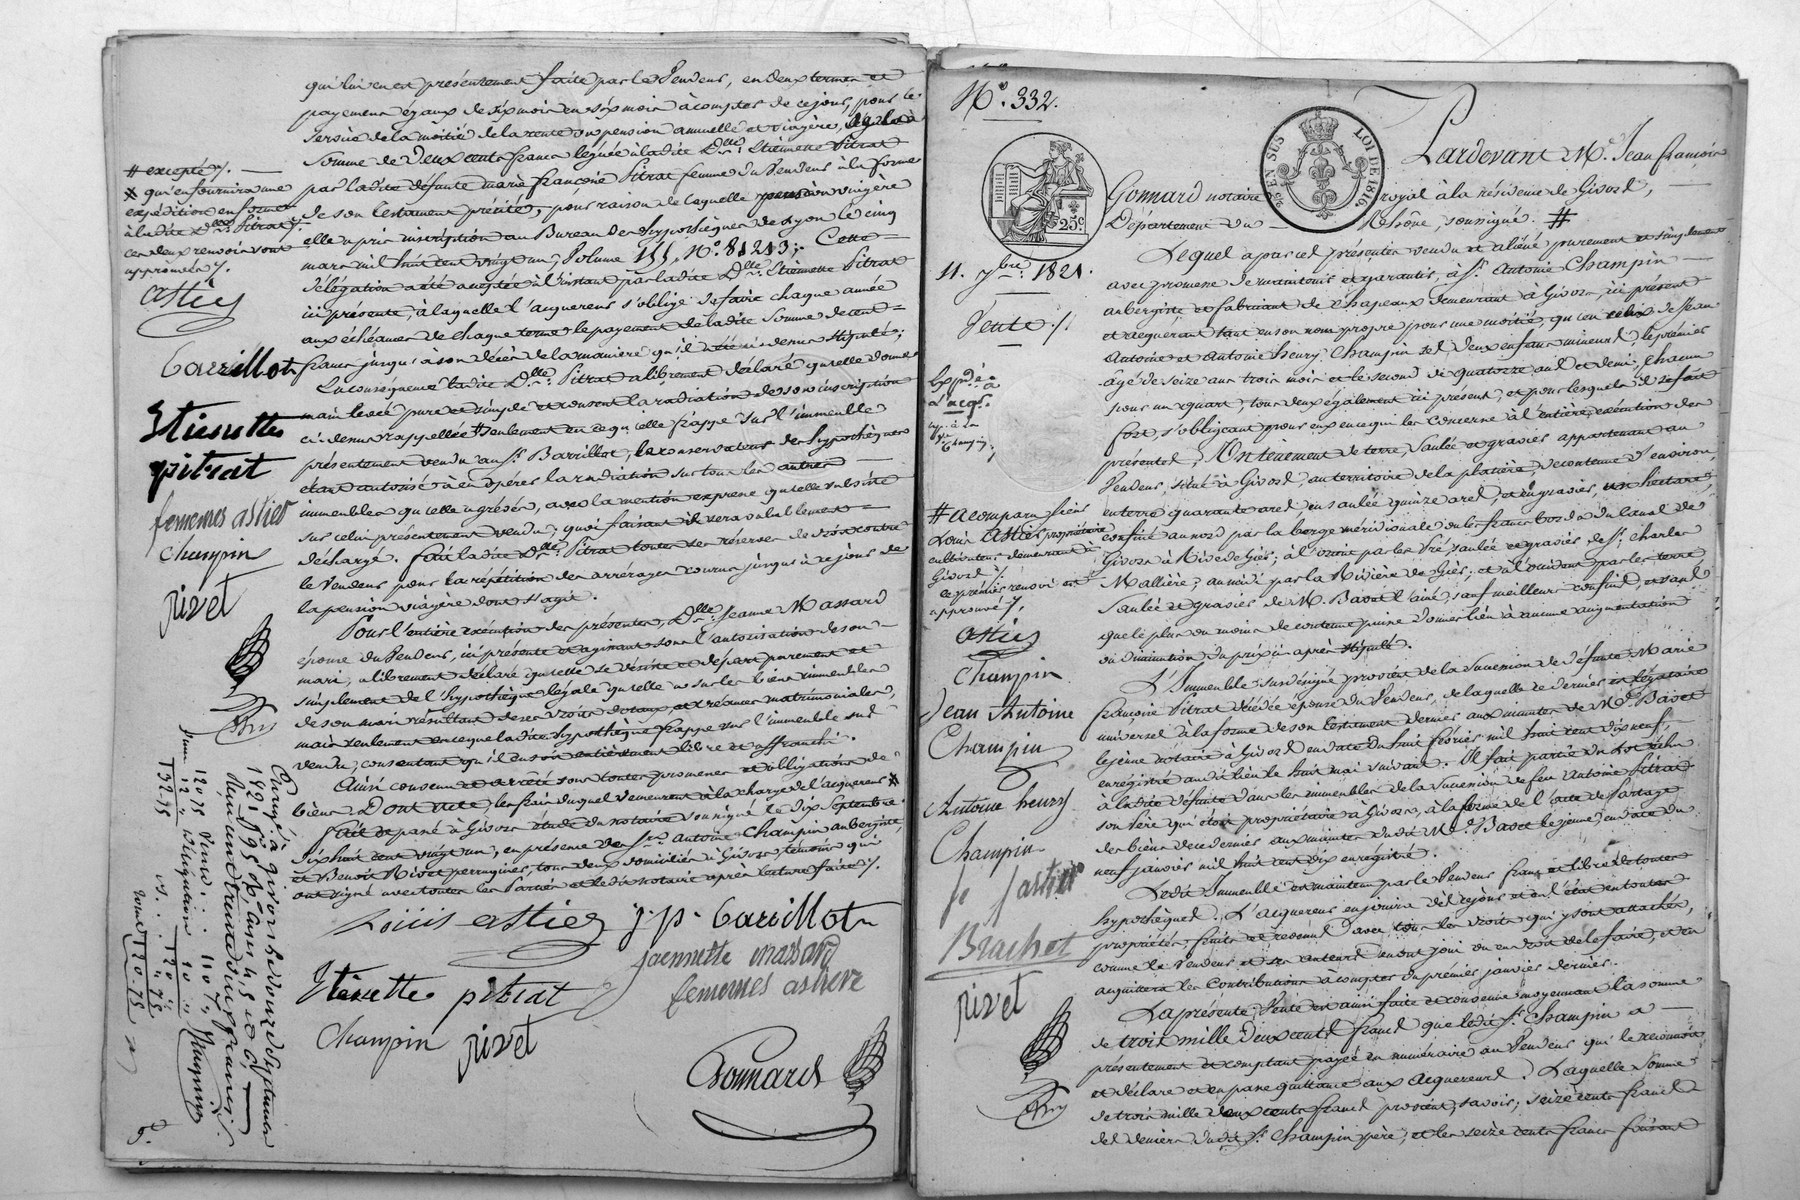 qui lui en est présentement faite par le Vendeur, en deux termes et
payemens égaux de six mois en six mois à compter de ce jour, pour le
service de la moitié de la rente ou pension annuelle et viagère,
Somme de Deux cents francs léguée à ladite Dlle. Etiennette Pitrat
par ladite défunte marie françoise Pitrat femme du Vendeur à la forme
de son testament précité, pour raison de laquelle pension viagère
elle a pris inscription au Bureau des hypothèques de Lyon le cinq
mars mil huit cent vingt un, Volume 155, No. 81213; Cette
délégation a été acceptée à l'instant par ladite Dlle. Etiennette Pitrat
ici présente, à laquelle l'acquereur s'oblige de faire chaque année
aux échéances de chaque terme le payement de ladite Somme de cent
francs jusqu'à son décès de la manière qu'il a été ci-dessus stipulé;
La conséquence ladite Dlle. Pitrat a librement déclaré qu'elle donne
main levée pure et simple et consent la radiation de son inscription
ci-dessus rappellée # seulement en ce qu'elle frappe sur l'immeuble
présentement vendu au Sr. Barrillot, le conservateur des hypothèques
étant autorisé à en opérer la radiation sur tous les autres
immeubles qu'elle a grévés, avec la mention expresse qu'elle subsiste
sur celui présentement vendu; quoi faisant il sera valablement
déchargé. fait ladite Dlle. Pitrat toutes ses réserves de droit contre
le Vendeur pour la répétition des arrérages courus jusqu'à ce jour de
la pension viagère dont s'agit.
Pour l'entière exécution des présentes, Dlle. Jeanne Massard
épouse du Vendeur, ici présente et agissant sous l'autorisation de son
mari, a librement déclaré qu'elle se désiste et départ purement et
simplement de l'hypothèque légale qu'elle a sur les biens immeubles
de son mari résultant de ses droits dotaux et créances matrimoniales,
mais seulement en ce que ladite hypothèque frappe sur l'immeuble sus
vendu, consentant qu'il en soit entièrement libre et affranchi.
Ainsi convenu et arrêté sous toutes promesses et obligations de
biens. Dont acte, les frais duquel demeurent à la charge de l'acquereur ※
fait et passé à Givors étude du notaire soussigné le dix Septembre
dix huit cent vingt un, en présence des Srs. Antoine Champin aubergiste,
et Benoit Rivet perruquier, tous deux domiciliés à Givors, témoins qui
ont signé avec toutes les Parties et ledit notaire après lecture faite /.
# excepté /.
※ qui en fournira une
expédition en forme
à ladite Dlle. Pitrat /.
ces deux renvois sont
approuvés /.
astier
barrillot
Etiennette
pitrat
femmes astier
Champin
rivet
Louis astier j. p. barrillot
Jaennette masard
femmes astier
Etiennette pitrat
Champin rivet
Gonnard
Enregé à Givors le douze Septembre
1821 fo 95
Reçu cent trente deux francs
No. 332.
25 EN SUS
LOI DE 1816.
25c.
Pardevant Me. Jean françois
Gonnard notaire royal à la résidence de Givors,
Département du Rhône, soussigné. #
11. 7bre. 1821.
Vente /.
Expdé. à
L'acqr.
Lequel a par ces présentes vendu et aliéné purement et simplement
avec promesse de maintenir et garantir, à Sr. Antoine Champin
aubergiste et fabricant de chapeaux demeurant à Givors, ici présent
et acquerant tant en son nom propre pour une moitié, qu'en celui de Jean
Antoine et Antoine heury Champin ses deux enfans mineurs, le premier
âgé de seize ans trois mois et le second de quatorze ans et demi, chacun
pour un quart, tous deux également ici présens, et pour lesquels il se fait
fort, s'obligeant pour eux en ce qui les concerne à l'entière exécution des
présentes, Un tènement de terre, saulée et gravier appartenant au
Vendeur, situé à Givors, au territoire de la platière, de contenue d'environ,
en terre quarante ares, en saulée quinze ares, et en gravier, un hectare,
confiné au nord par la berge méridionale ou les francs bords du Canal de
Givors à Rive de Gier, à l'orient par les Pré, saulée et gravier de Sr. charles
Mallière; au midi par la Rivière de Gier, et à l'occident par les terre
Saulée et gravier de M. Bavet l'aîné, sauf meilleurs confins, et sans
que le plus ou moins de contenue puisse donner lieu à aucune augmentation
ou diminution du prix ci-après stipulé.
# acomparu sieur
Louis Astier propriétaire
cultivateur demeurant à
Givors /.
ce premier renvoi est
approuvé /.
astier
Champin
Jean Antoine
Champin
Antoine heury
Champin
Brachet
rivet
L'Immeuble susdésigné provient de la Succession de défunte Marie
françoise Pitrat décédée épouse du Vendeur, de laquelle ce dernier est légataire
universel à la forme de son testament dernier aux minutes de Me. Bavet
lejeune notaire à Givors en date du huit février mil huit cent dix neuf,
enregistré audit lieu le huit mai suivant. Il fait partie du Lot échu
à ladite défunte dans les immeubles de la Succession de feu Antoine Pitrat
son Père qui étoit propriétaire à Givors, à la forme de l'acte de Partage
des biens de ce dernier aux minutes dudit Me. Bavet lejeune, en date du
neuf janvier mil huit cent dix enregistré.
Ledit Immeuble est maintenu par le Vendeur franc et libre de toutes
hypothèques. L'acquereur en jouira dès ce jour et en l'état en toutes
propriétés, fruits et revenus, avec tous les droits qui y sont attachés,
comme le Vendeur et ses auteurs en ont joui ou eu droit de le faire, et en
acquittera les Contributions à compter du premier janvier dernier.
La présente Vente est ainsi faite et convenue moyennant la somme
de trois mille deux cents francs que ledit Sr. Champin a
présentement et comptant payée en numéraire au Vendeur qui le reconnoit
et déclare et en passe quittance aux acquereurs. Laquelle somme
de trois mille deux cents francs provient, savoir; seize cents francs
des deniers dudit Sr. Champin père, et les seize cents francs faisant